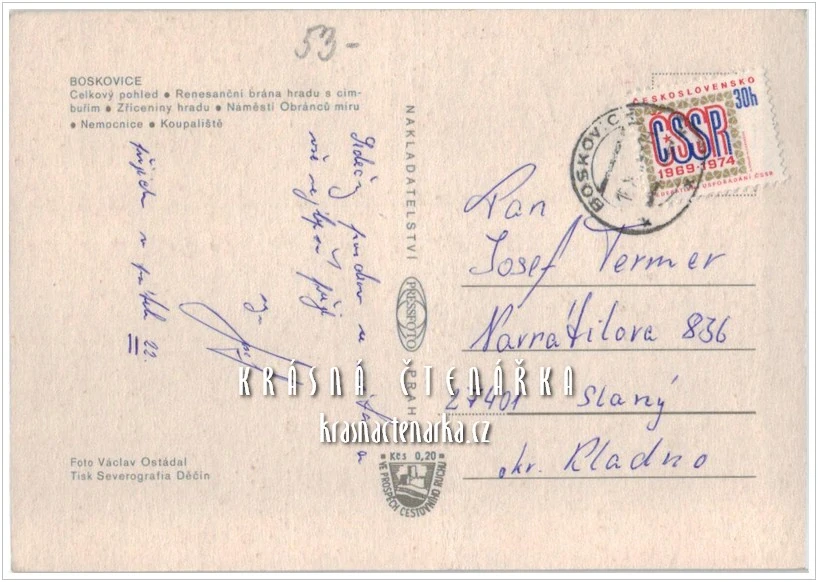 53-
BOSKOVICE
Celkový pohled ● Renesanční brána hradu s cim-
buřím ● Zříceniny hradu ● Náměstí Obránců míru
● Nemocnice ● Koupaliště
NAKLADATELSTVÍ
PRESSFOTO
PRAHA
ČESKOSLOVENSKO
30h
ČSSR
1969·1974
FEDERATIVNÍ USPOŘÁDÁNÍ ČSSR
BOSKOVIC
Pan
Josef Termer
Navrátilova 836
27401 Slaný
okr. Kladno
Srdečný pozdrav
vše nejlepší přeje
22.
KRÁSNÁ ČTENÁŘKA
krasnactenarka.cz
Foto Václav Ostádal
Tisk Severografia Děčín
● Kčs 0,20 ●
VE PROSPĚCH CESTOVNÍHO RUCHU